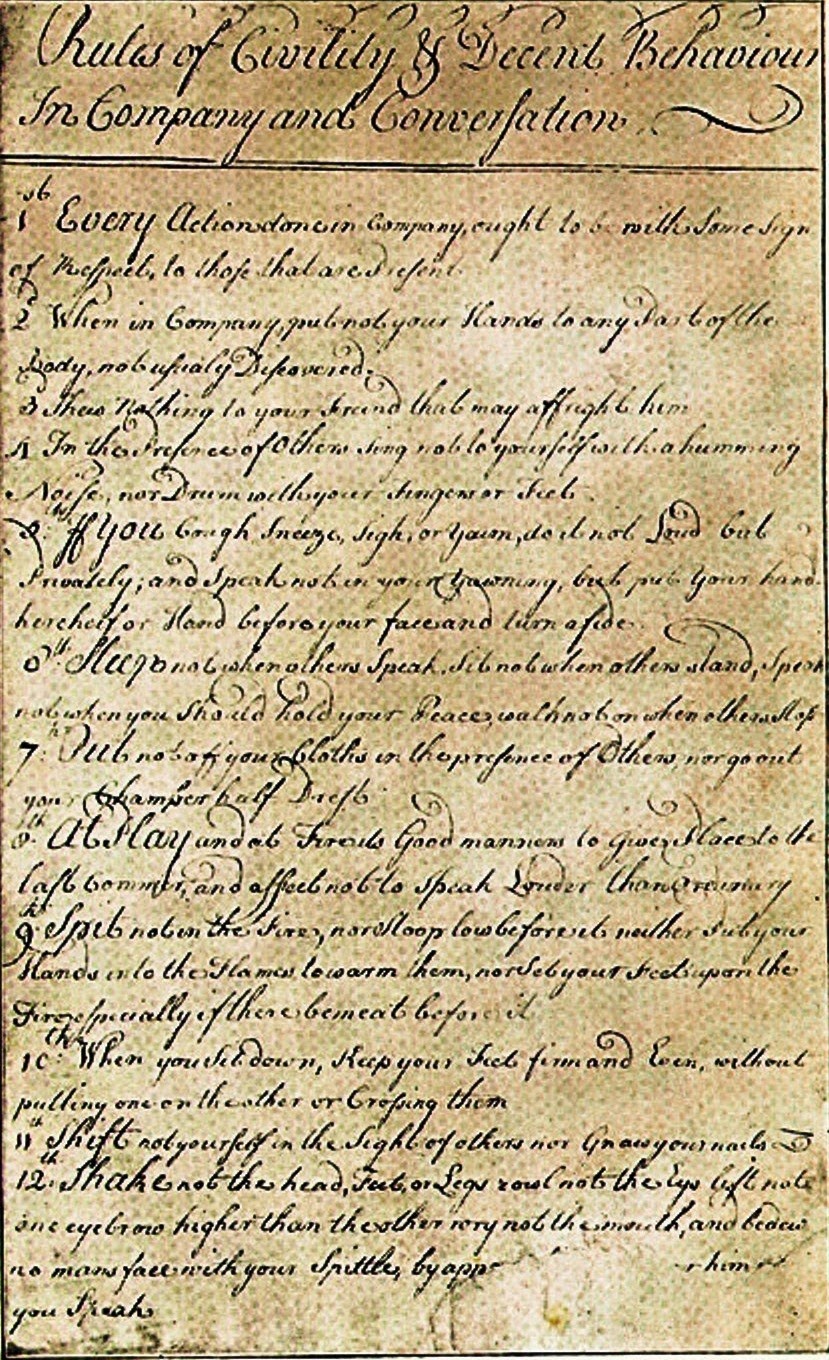 Rules of Civility & Decent Behaviour
In Company and Conversation
1st Every Action done in Company, ought to be with Some Sign
of Respect, to those that are Present
2d When in Company, put not your Hands to any Part of the
Body, not usualy Discovered.
3 Shew Nothing to your Freind that may affright him
4 In the Presence of Others sing not to yourself with a humming
Noise, nor Drum with your Fingers or Feet
5th If You Cough, Sneeze, Sigh, or Yawn, do it not Loud but
Privately; and Speak not in your Yawning, but put Your hand
kercheif or Hand before your face and turn aside
6th Sleep not when others Speak, Sit not when others stand, Speak
not when you Should hold your Peace, walk not on when others Stop
7th Put not off your Cloths in the presence of Others, nor go out
your Chamber half Drest
8th At Play and at Fire its Good manners to Give Place to the
last Commer, and affect not to Speak Louder than Ordinary
9th Spit not in the Fire, nor Stoop low before it neither Put your
Hands into the Flames to warm them, nor Set your Feet upon the
Fire especially if there be meat before it
10th When you Sit down, Keep your Feet firm and Even, without
putting one on the other or Crossing them
11th Shift not yourself in the Sight of others nor Gnaw your nails
12th Shake not the head, Feet, or Legs rowl not the Eys lift not
one eyebrow higher than the other wry not the mouth, and bedew
no mans face with your Spittle, by app him
you Speak